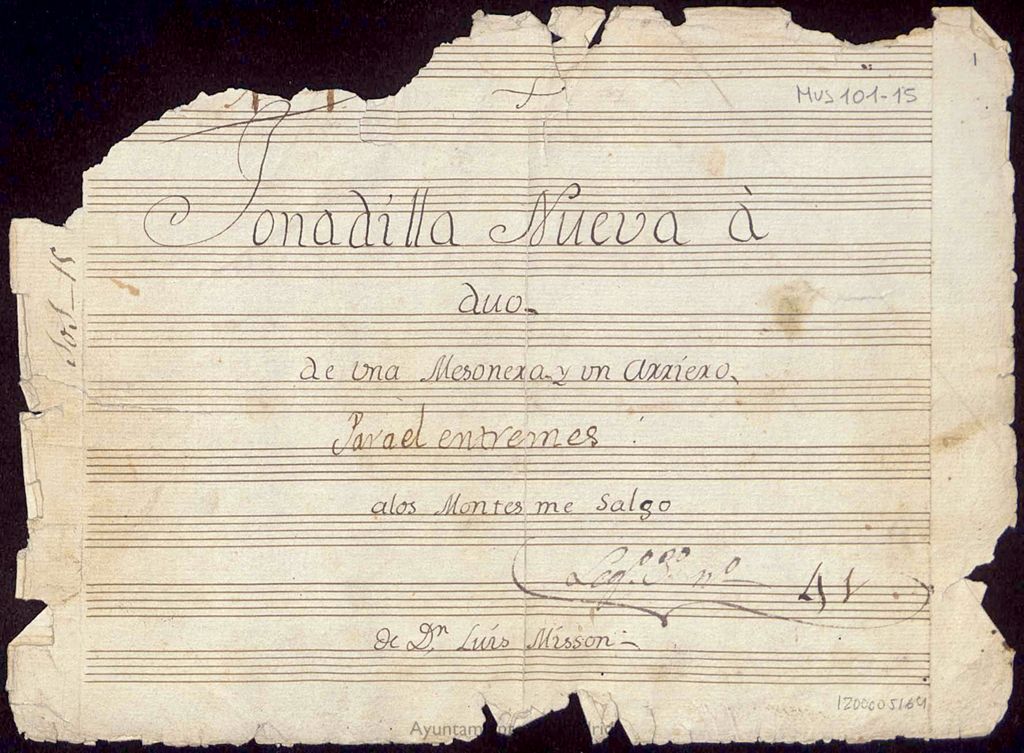 1
Mus 101-15
Tonadilla Nueva à
duo
de una Mesonera y un Arriero
Para el entremes
a los Montes me Salgo
Leg.º 3.º nº 41
de Dn. Luis Misson
1200005164
Ayuntam